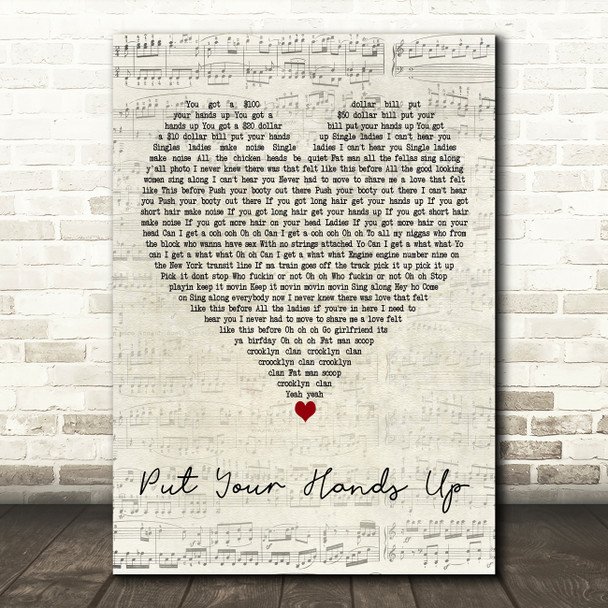 You got a $100 dollar bill put
your hands up You got a $50 dollar bill put your
hands up You got a $20 dollar bill put your hands up You got
a $10 dollar bill put your hands up Single ladies I can't hear you
Singles ladies make noise Single ladies I can't hear you Single ladies
make noise All the chicken heads be quiet Fat man all the fellas sing along
y'all photo I never knew there was that felt like this before All the good looking
women sing along I can't hear you Never had to move to share me a love that felt
like This before Push your booty out there Push your booty out there I can't hear
you Push your booty out there If you got long hair get your hands up If you got
short hair make noise If you got long hair get your hands up If you got short hair
make noise If you got more hair on your head Ladies If you got more hair on your
head Can I get a ooh ooh Oh oh Can I get a ooh ooh Oh oh To all my niggas who from
the block who wanna have sex With no strings attached Yo Can I get a what what Yo
can I get a what what Oh oh Can I get a what what Engine engine number nine on
the New York transit line If ma train goes off the track pick it up pick it up
Pick it dont stop Who fuckin or not Oh oh Who fuckin or not Oh oh Stop
playin keep it movin Keep it movin movin movin Sing along Hey ho Come
on Sing along everybody now I never knew there was love that felt
like this before All the ladies if you're in here I need to
hear you I never had to move to share me a love felt
like this before Oh oh oh Go girlfriend its
ya birfday Oh oh oh Fat man scoop
crooklyn clan crooklyn clan
croocklyn clan crooklyn
clan Fat man scoop
crooklyn clan
Yeah yeah
Put Your Hands Up